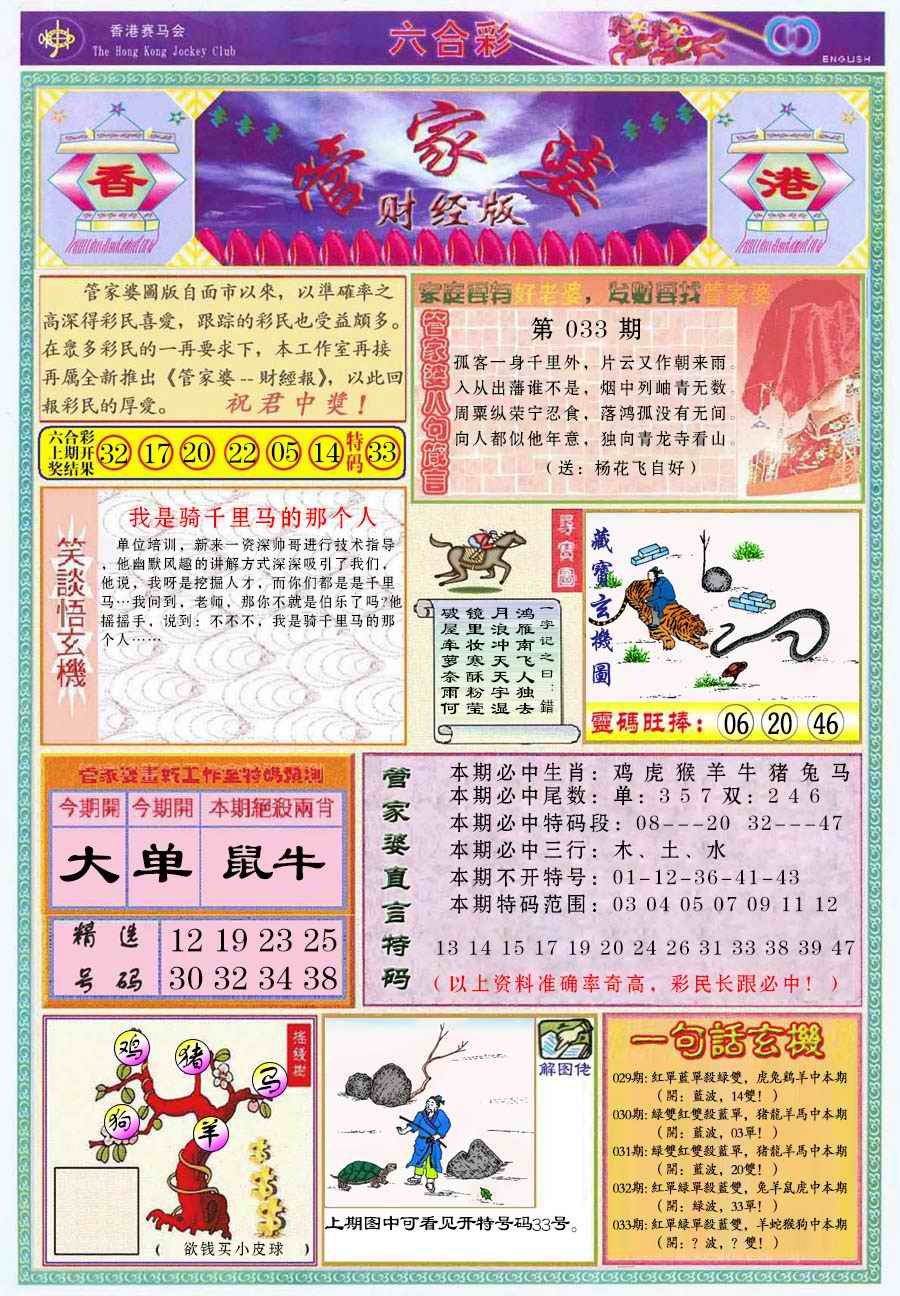 香港赛马会
The Hong Kong Jockey Club
六合彩
ENGLISH
香
管家婆
财经版
港
管家婆圖版自面市以來，以準確率之
高深得彩民喜愛，跟踪的彩民也受益頗多。
在眾多彩民的一再要求下，本工作室再接
再厲全新推出《管家婆--財經報》，以此回
報彩民的厚愛。 祝君中獎！
六合彩
上期开
奖结果
32 17 20 22 05 14 特码 33
家庭要有好老婆，发财要找管家婆
管家婆八句箴言
第 033 期
孤客一身千里外，片云又作朝来雨。
入从出藩谁不是，烟中列岫青无数。
周粟纵荣宁忍食，落鸿孤没有无间。
向人都似他年意，独向青龙寺看山。
（送：杨花飞自好）
笑談悟玄機
我是骑千里马的那个人
单位培训，新来一资深帅哥进行技术指导
，他幽默风趣的讲解方式深深吸引了我们，
他说，我呀是挖掘人才，而你们都是是千里
马…我问到，老师，那你不就是伯乐了吗?他
摇摇手，说到：不不不，我是骑千里马的那
个人……
尋寶圖
一字记之曰：錯
鸿雁南飞人独去
月浪冲天天宇湿
镜里妆寒酥粉莹
破屋牵萝奈雨何
藏寶玄機圖
靈碼旺捧：06 20 46
今期開 今期開 本期絕殺兩肖
大 单 鼠牛
精选
号码
12 19 23 25
30 32 34 38
管家婆直言特码
本期必中生肖：鸡 虎 猴 羊 牛 猪 兔 马
本期必中尾数：单：3 5 7 双：2 4 6
本期必中特码段：08---20 32---47
本期必中三行：木、土、水
本期不开特号：01-12-36-41-43
本期特码范围：03 04 05 07 09 11 12
13 14 15 17 19 20 24 26 31 33 38 39 47
（以上资料准确率奇高，彩民长跟必中！）
摇錢樹
鸡
猪
马
狗
羊
（ 欲钱买小皮球 ）
解图佬
上期图中可看见开特号码33号。
一句話玄機
029期：紅單藍單殺緑雙，虎兔鷄羊中本期
（開：藍波，14雙！）
030期：緑雙紅雙殺藍單，猪龍羊馬中本期
（開：藍波，03單！）
031期：緑雙紅雙殺藍單，猪龍羊馬中本期
（開：藍波，20雙！）
032期：紅單緑單殺藍雙，兔羊鼠虎中本期
（開：緑波，33單！）
033期：紅單緑單殺藍雙，羊蛇猴狗中本期
（開：？波，？雙！）